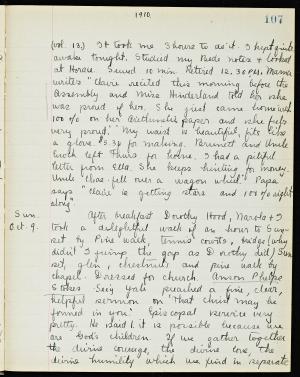 1910.
107
(Oct. 13.) It took me 3 hours to do it. I kept quite
awake tonight. Studied my Bede notes & looked
at Horace. Sewed 10 min. Retired 12.30 P.M. Mama
writes "Claire recited this morning before the
Assembly and Miss Hinderland told her she
was proud of her. She just came home with
100% on her arithmetic paper and she feels
very proud." My waist is beautiful, fits like
a glove. $5.50 for making. Bennett and Uncle
Enoch left Thurs for home. I had a pitiful
letter from Ella. She keeps hinting for money.
Uncle "Chas. fell over a wagon wheel." Papa
says "Claire is getting stars and 100% right
along."
Sun. After breakfast Dorothy Hood, Marota & I
Oct. 9. took a delightful walk of an hour to Sun-
set by Pine walk, tennis courts, bridge (why
didn't I jump the gap as Dorothy did) Sun
set, glen, chestnut, and pine walk by
chapel. Dressed for church. Anson Phelps
Stokes Secy Yale preached a fine, clear,
helpful sermon on "That Christ may be
formed in you." Episcopal service very
pretty. He said it is possible because we
are God's children. If we gather together
the divine courage, the divine love, the
divine humility which we find in separate